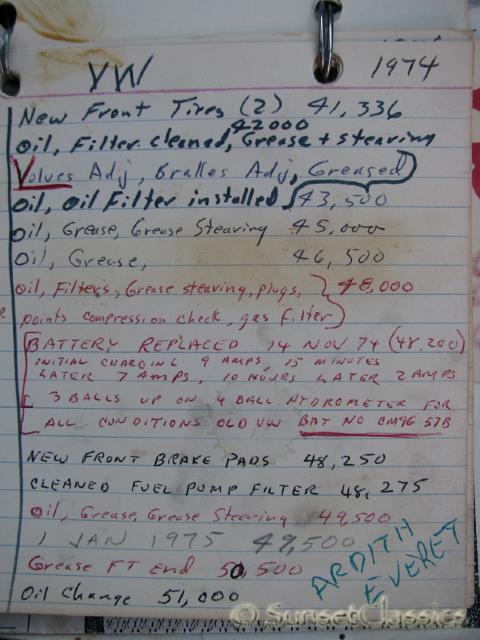 VW 1974
New Front Tires (2) 41,336
42000
Oil, Filter cleaned, Grease + stearing
Valves Adj, Brakes Adj, Greased
Oil, Oil Filter installed 43,500
Oil, Grease, Grease Stearing 45,000
Oil, Grease, 46,500
Oil, Filters, Grease stearing, plugs, 48,000
points compression check, gas filter
BATTERY REPLACED 14 NOV 74 (48,200)
INITIAL CHARGING 9 AMPS, 15 MINUTES
LATER 7 AMPS, 10 HOURS LATER 2 AMPS
3 BALLS UP ON 4 BALL HYDROMETER FOR
ALL CONDITIONS OLD VW BAT NO CM96 57B
NEW FRONT BRAKE PADS 48,250
CLEANED FUEL PUMP FILTER 48,275
Oil, Grease, Grease Stearing 49,500
1 JAN 1975 49,500
Grease FT End 50,500
Oil Change 51,000
ARDITH
EVERET
© SunsetClassics